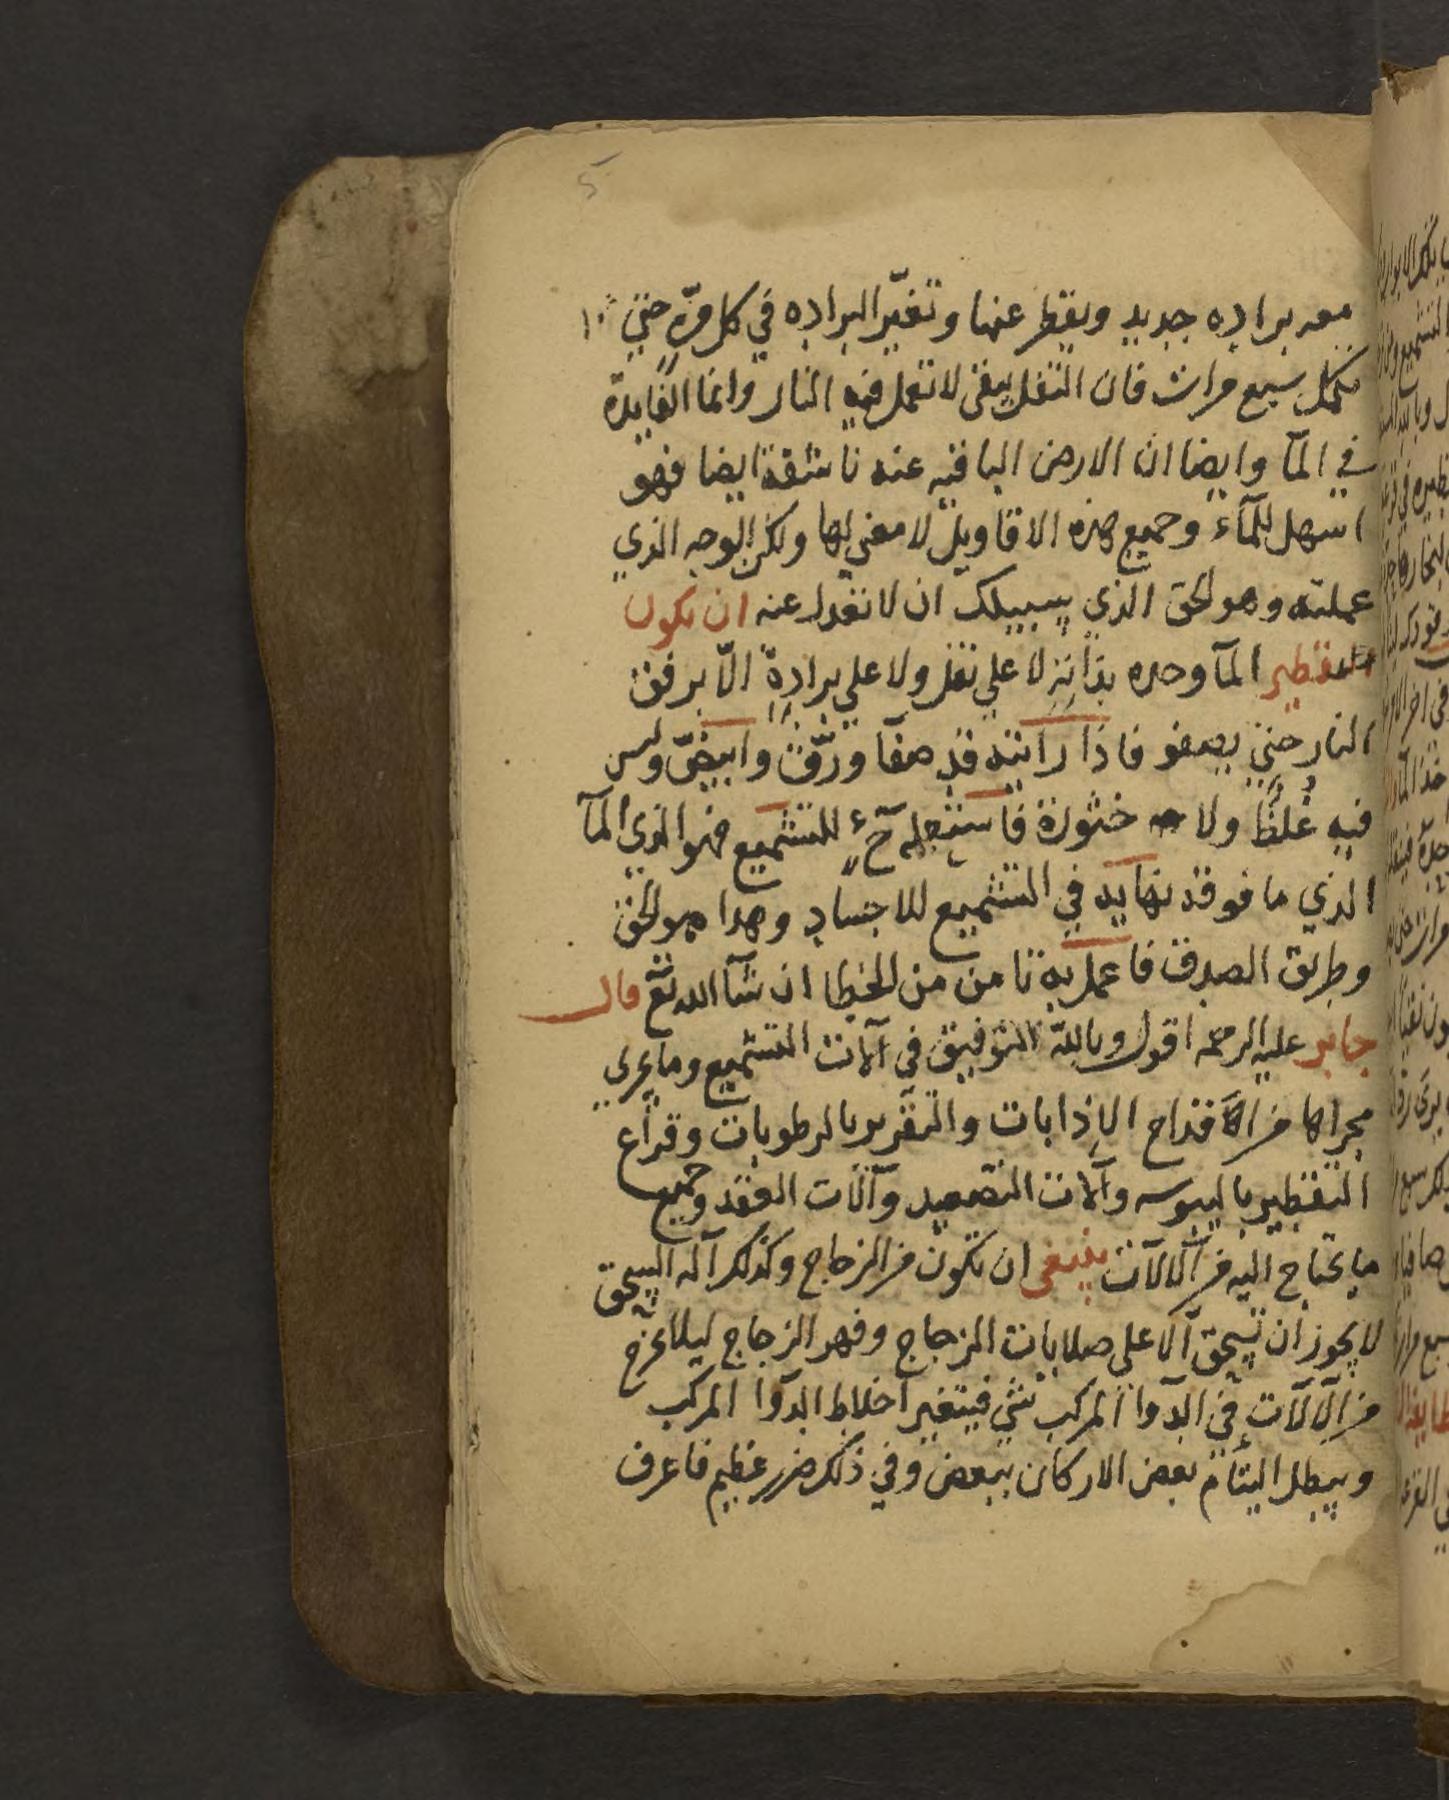 5
معه براده جديد ويقطر عنها وتغيّر البراده في كل مرّة حتى
تكمل سبع مرات فان الثفل يبقى لا تعمل فيه النار وانما الفايدة
في المآ وايضا ان الارض الباقيه عنه ناشفة ايضا فهو
اسهل للمآء وجميع هذه الاقاويل لا معنى لها ولكن الوجه الذي
عملته وهو الحق الذي يسبيلك ان لا تعدل عنه ان يكون
التقطير المآ وحده بذاته لا على ثفل ولا على برادة الّا برفق
النار حتى يصفو فاذا رايته قد صفآ ورَّق وابيضّ وليس
فيه غُلظًا ولا خثورة فاستعمله حٓ للتشميع فهو الذي المآ
الذي ما فوقه نهايه في التشميع للاجساد وهدا هو الحق
وطريق الصدق فاعمل به تامن من الخطا ان شآ الله تع قال
جابر عليه الرحمه اقول وبالله التوفيق في آلات التشميع وما يجري
مجراها من الاقداح الإذابات والتقرير بالرطوبات وقراع
التقطير باليبوسه وآلات التصعيد وآلات العقد وجميع
ما يحتاج اليه من الآلات ينبغي ان تكون من الزجاج وكذلك آله السحق
لا يجوز ان تسحق الا على صلايات الزجاج وفهر الزجاج ليلا يخرج
من الآلات في الدوآ المركب شي فيتغير اخلاط الدوآ المركب
ويبطل اليتأم بعض الاركان ببعض وفي ذلك ضرر عظيم فاعرف